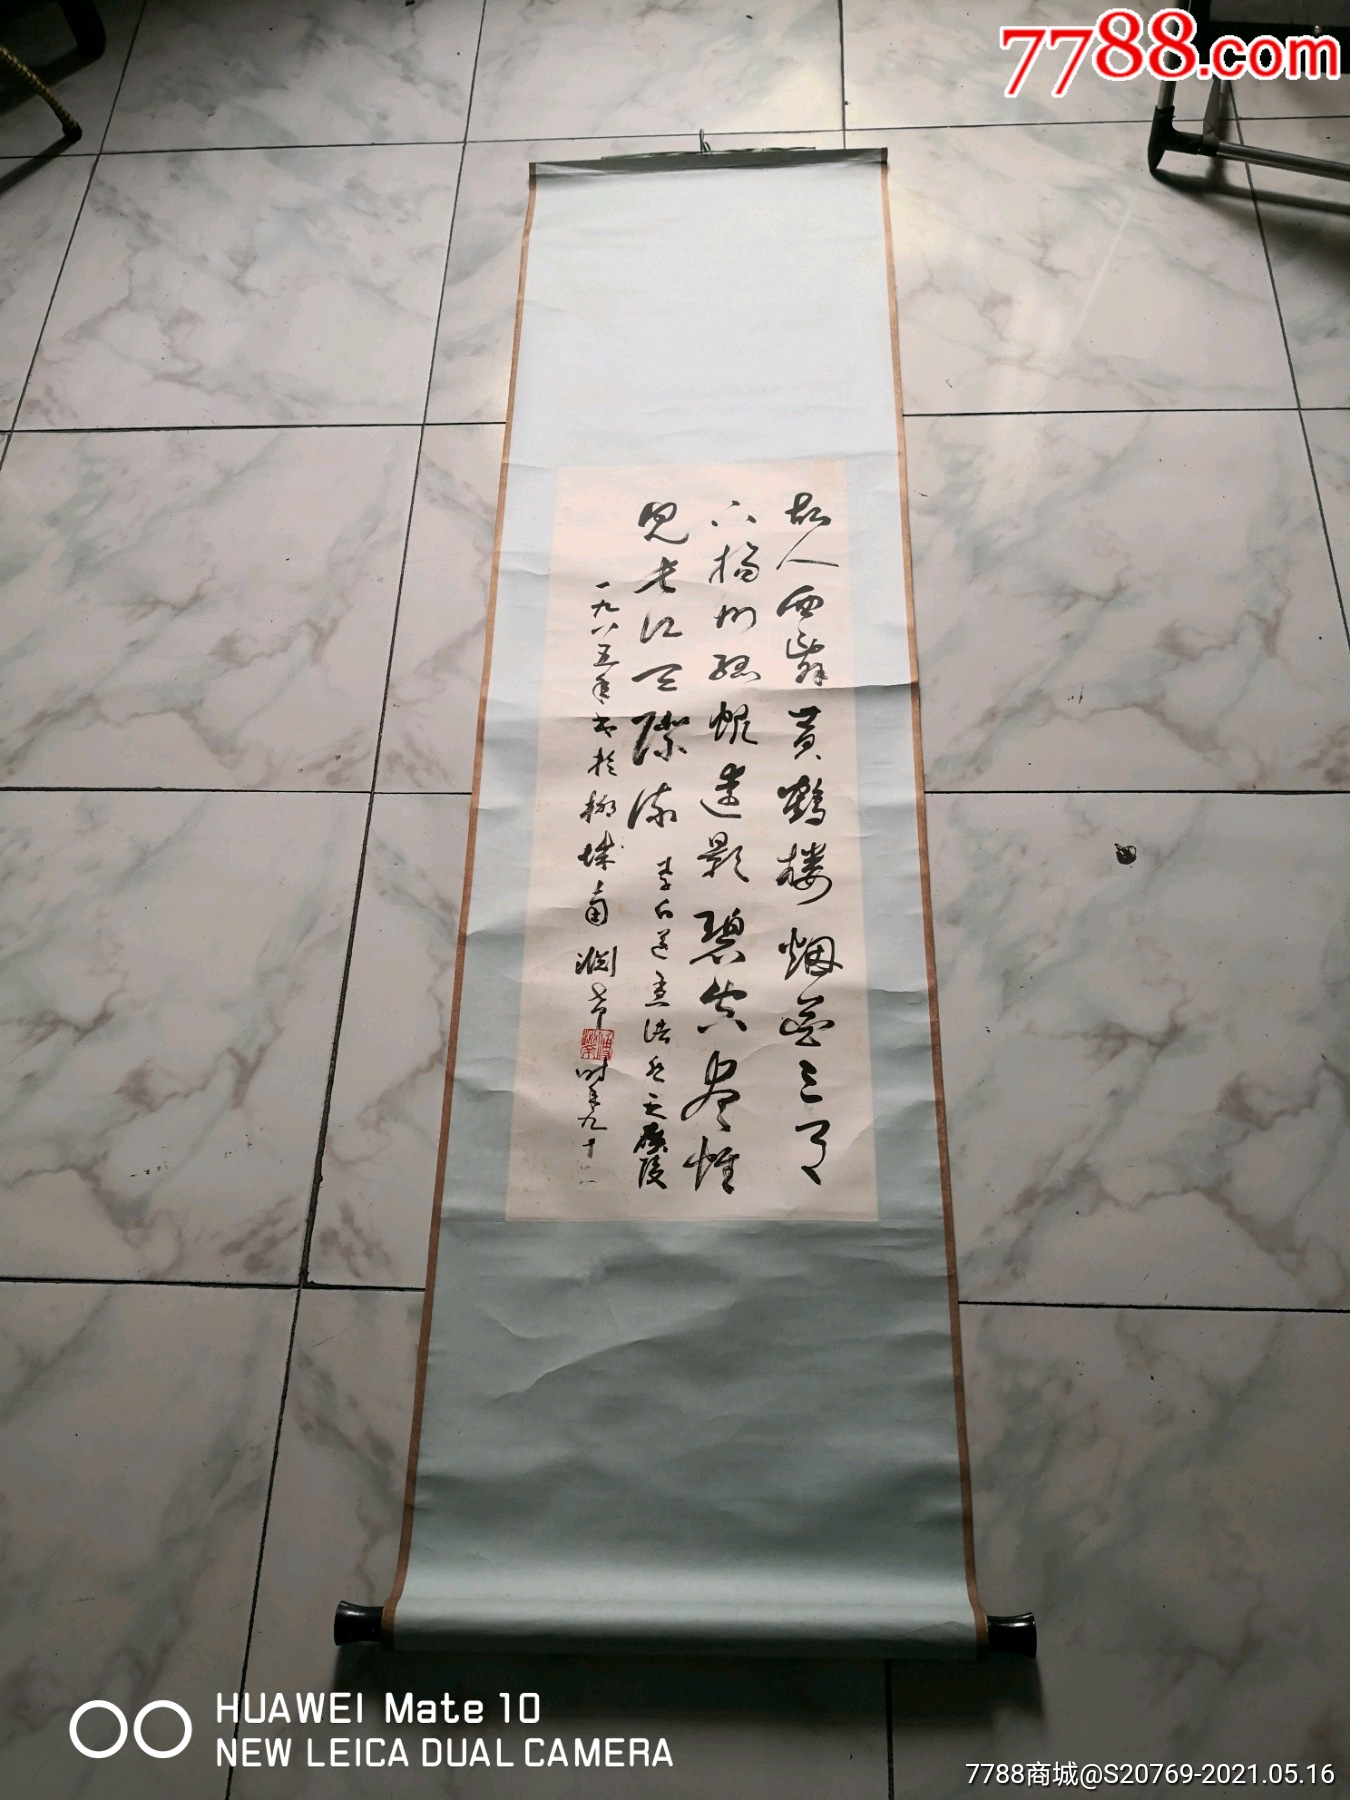 7788.com
故人西辞黄鹤楼烟花三月
下扬州孤帆远影碧空尽惟
见长江天际流 李白送孟浩然之广陵
一九八五年书于柳城南 渊希 时年九十一
HUAWEI Mate 10
NEW LEICA DUAL CAMERA
7788商城@S20769-2021.05.16